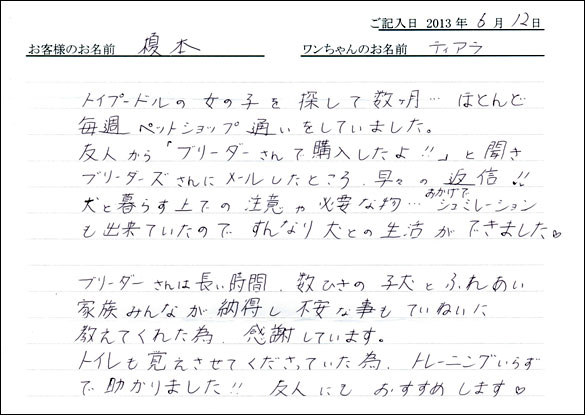 ご記入日 2013 年 6 月 12 日
お客様のお名前 榎本 ワンちゃんのお名前 ティアラ
トイプードルの女の子を探して数ヶ月… ほとんど
毎週ペットショップ通いをしていました。
友人から「ブリーダーさんで購入したよ!!」と聞き
ブリーダーズさんにメールしたところ、早々の返信!!
犬と暮らす上での注意や必要な物… おかげで シュミレーション
も出来ていたので すんなり犬との生活ができました♡
ブリーダーさんは長い時間、数ひきの子犬とふれあい
家族みんなが納得し 不安な事もていねいに
教えてくれた為、感謝しています。
トイレも覚えさせてくださっていた為、トレーニングいらず
で助かりました!! 友人にも おすすめします♡